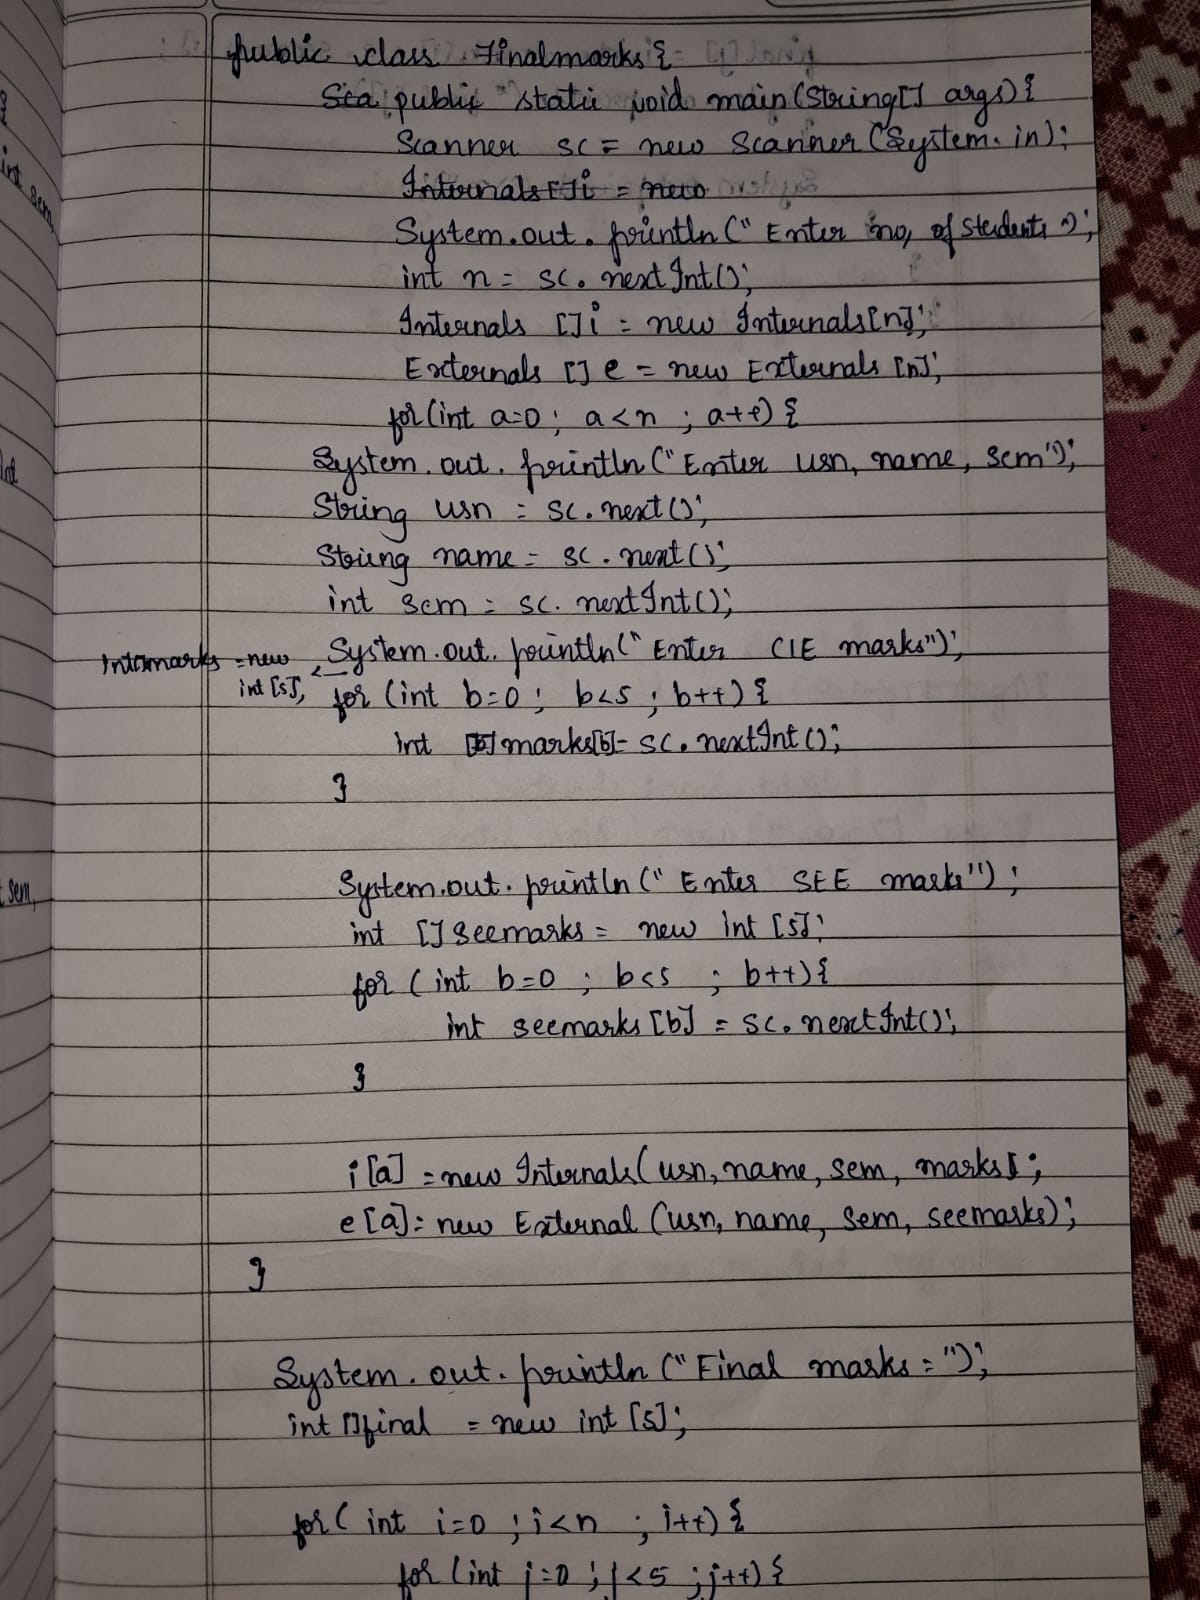 public class Finalmarks {
public static void main(String[] args) {
Scanner sc = new Scanner (System. in);
Internals []i = new
System.out. println (" Enter no, of students ");
int n = sc. next Int ();
Internals []i = new Internals[n];
Externals [] e = new Externals [n];
for (int a=0; a<n ; a++) {
System. out. println (" Enter usn, name, sem");
String usn = sc. next ();
String name = sc. next ();
int sem = sc. next Int ();
System.out. println (" Enter CIE marks");
Int marks = new
int [5];
for (int b=0; b<5 ; b++) {
int marks[b]= sc. next Int ();
}
System.out. println (" Enter SEE marks");
int [] seemarks = new int [5];
for ( int b=0 ; b<5 ; b++) {
int seemarks [b] = sc. next Int();
}
i [a] = new Internals (usn, name, sem, marks ;
e [a]= new External (usn, name, sem, seemarks);
}
System. out. println (" Final marks = ");
int []final = new int [5];
for ( int i=0 ; i<n ; i++) {
for (int j=0 ; j<5 ; j++) {
int sem,
Int
sem,